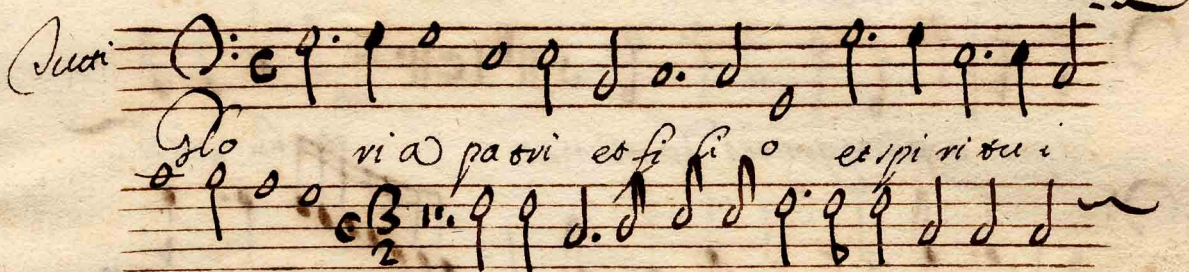 Tutti
Glo ri a pa tri et fi li o et spi ri tu i
3
2